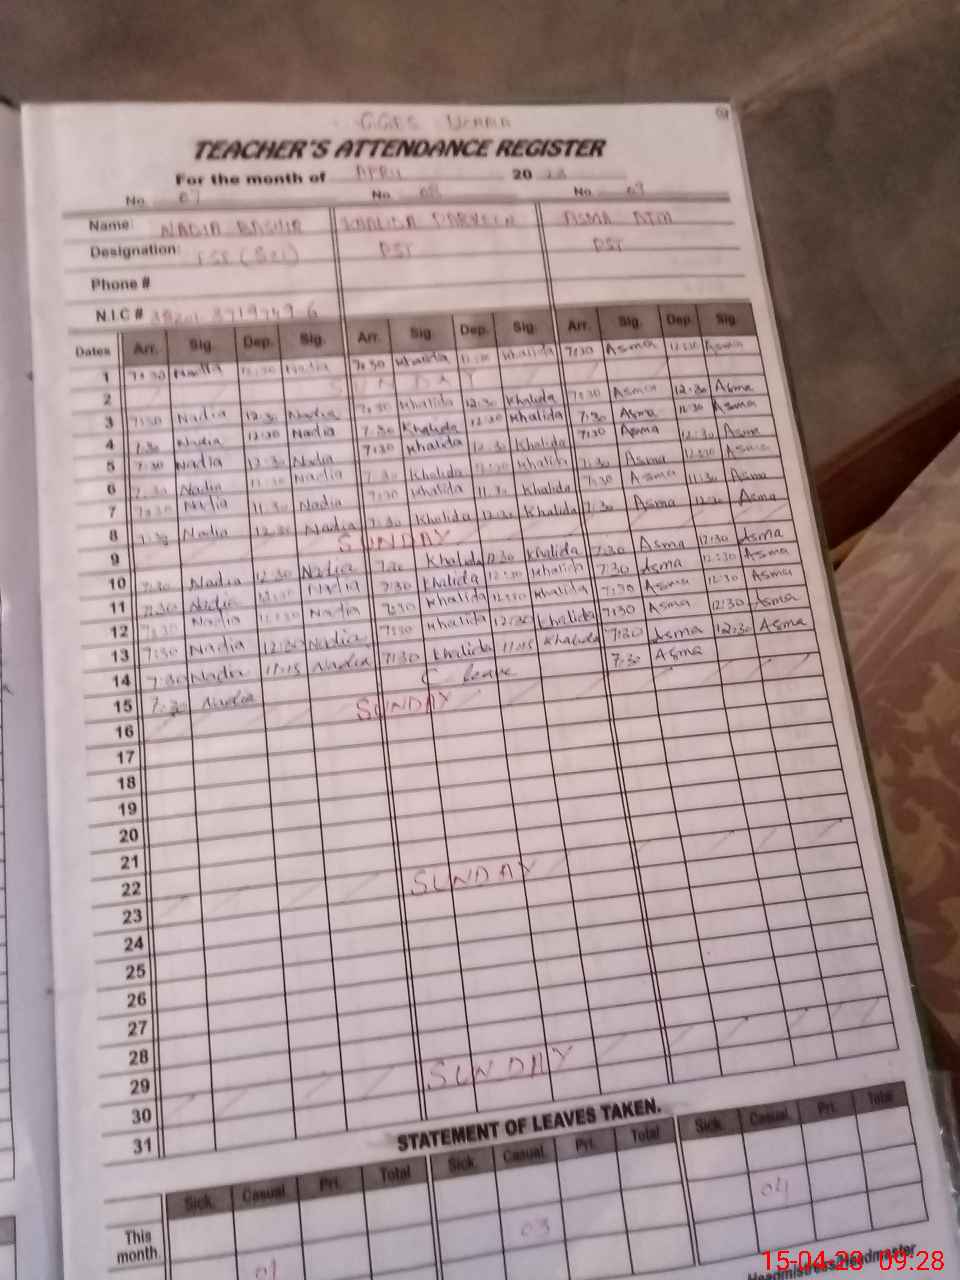 GGES
TEACHER'S ATTENDANCE REGISTER
For the month of APRIL 2023
No. 07 No. 08 No. 09
Name: NADIA BASHIR KHALIDA PARVEEN ASMA
Designation: PST PST
Phone #
N.I.C #
Dates Arr. Sig. Dep. Sig. Arr. Sig. Dep. Sig. Arr. Sig. Dep. Sig.
1 7:30 Nadia 12:30 Nadia 7:30 Khalida Khalida 7:30 Asma 12:30 Asma
2 SUNDAY
3 7:30 Nadia 12:30 Nadia 7:30 Khalida 12:30 Khalida 7:30 Asma 12:30 Asma
4 7:30 Nadia 12:30 Nadia 7:30 Khalida 12:30 Khalida 7:30 Asma 12:30 Asma
5 7:30 Nadia 12:30 Nadia 7:30 Khalida 12:30 Khalida 7:30 Asma 12:30 Asma
6 7:30 Nadia Nadia 7:30 Khalida 12:30 Khalida 7:30 Asma 12:30 Asma
7 7:30 Nadia 11:30 Nadia 7:30 Khalida 11:30 Khalida 7:30 Asma 11:30 Asma
8 7:30 Nadia 12:30 Nadia 7:30 Khalida 12:30 Khalida 7:30 Asma 12:30 Asma
9 SUNDAY
10 7:30 Nadia 12:30 Nadia 7:30 Khalida 12:30 Khalida 7:30 Asma 12:30 Asma
11 7:30 Nadia Nadia 7:30 Khalida 12:30 Khalida 7:30 Asma 12:30 Asma
12 7:30 Nadia 12:30 Nadia 7:30 Khalida 12:30 Khalida 7:30 Asma 12:30 Asma
13 7:30 Nadia 12:30 Nadia 7:30 Khalida 12:30 Khalida 7:30 Asma 12:30 Asma
14 7:30 Nadia 11:15 Nadia 7:30 Khalida 11:15 Khalida 7:30 Asma 12:30 Asma
15 7:30 Nadia C leave 7:30 Asma
16 SUNDAY
17
18
19
20
21
22
23 SUNDAY
24
25
26
27
28
29
30 SUNDAY
31
STATEMENT OF LEAVES TAKEN.
Sick. Casual. Pri. Total Sick. Casual. Pri. Total Sick. Casual. Pri. Total
This month. 01 03 04
Headmistress/Headmaster
15-04-23 09:28